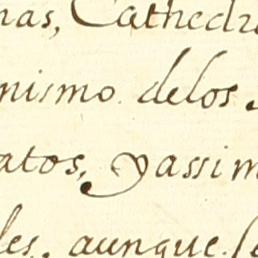 nas, Cathedra
nismo. delos
atos, yassim
les, aunque. se